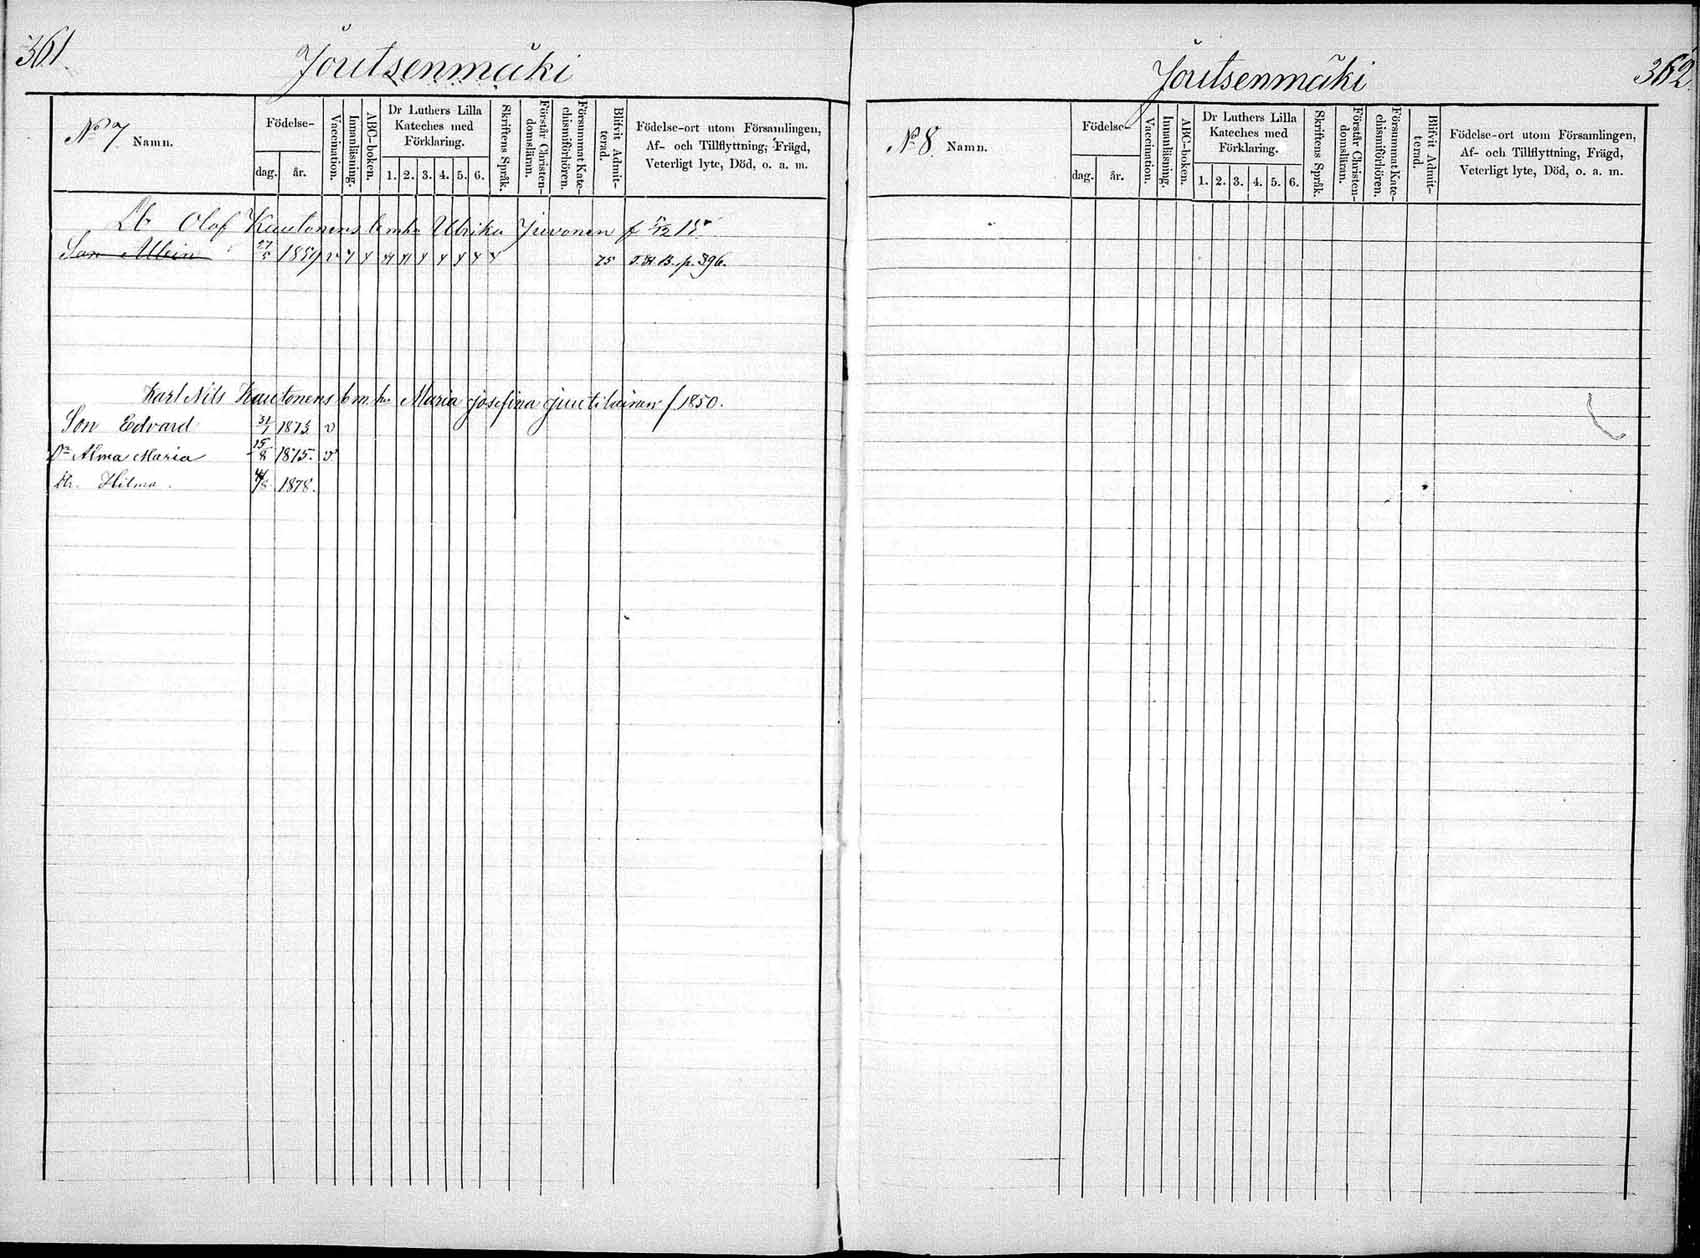 361
Joutsenmäki
No 7 Namn.
Födelse-
dag. år.
Vaccination.
Innanläsning.
ABC-boken.
Dr Luthers Lilla
Kateches med
Förklaring.
1. 2. 3. 4. 5. 6.
Skriftens Språk.
Förstår Christen-
domsläran.
Försummat Kate-
chismiförhören.
Blifvit Admit-
terad.
Födelse-ort utom Församlingen,
Af- och Tillflyttning, Frägd,
Veterligt lyte, Död, o. a. m.
Olof Kautonens Ulrika Juvonen f 5/12
Son Albin 27/5 1859 v 75 p. 396.
Karl Nils Kautonens Maria Josefina Juutilainen f 1850.
Son Edvard 31/7 1873 v
Dr Alma Maria 15/8 1875. v
Dr. Hilma. 1878.
Joutsenmäki
362
No 8. Namn.
Födelse-
dag. år.
Vaccination.
Innanläsning.
ABC-boken.
Dr Luthers Lilla
Kateches med
Förklaring.
1. 2. 3. 4. 5. 6.
Skriftens Språk.
Förstår Christen-
domsläran.
Försummat Kate-
chismiförhören.
Blifvit Admit-
terad.
Födelse-ort utom Församlingen,
Af- och Tillflyttning, Frägd,
Veterligt lyte, Död, o. a. m.